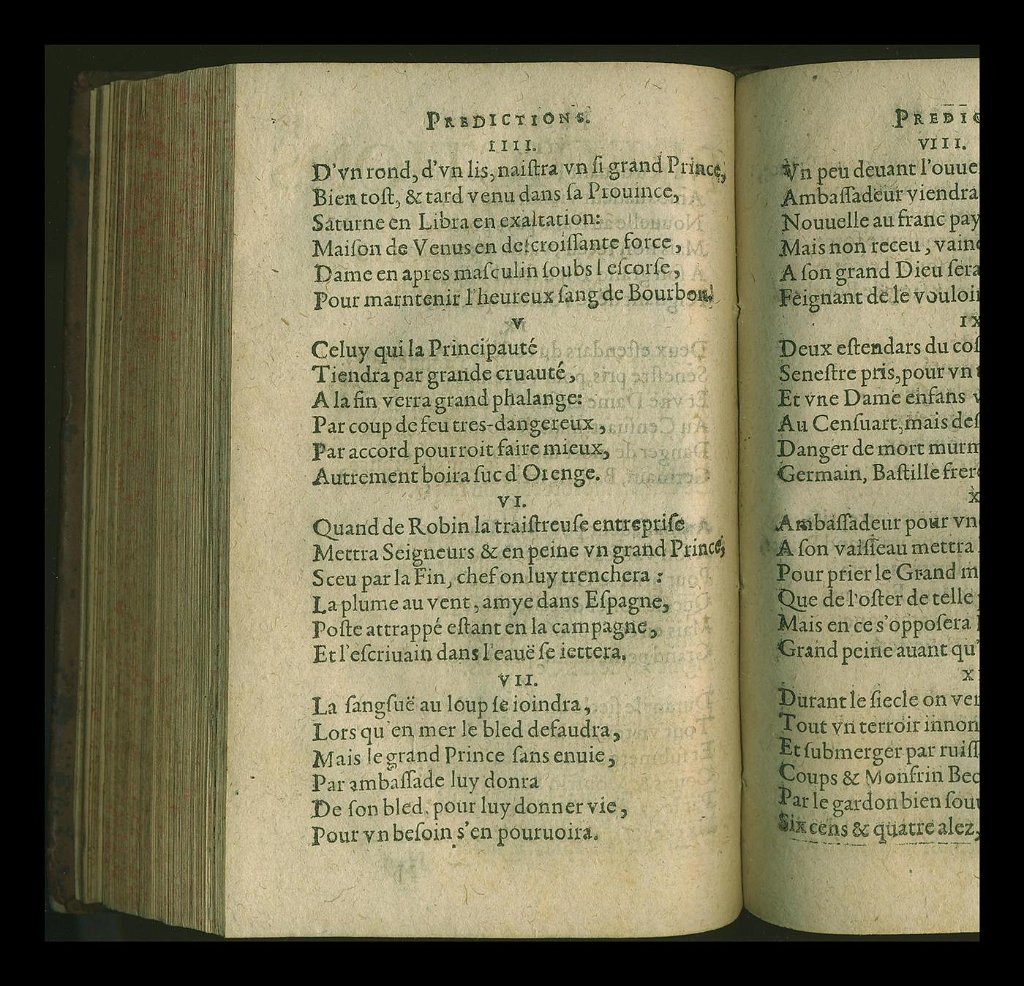 PREDICTIONS.
IIII.
D'vn rond, d'vn lis, naiſtra vn ſi grand Prince,
Bien toſt, & tard venu dans ſa Prouince,
Saturne en Libra en exaltation:
Maiſon de Venus en deſcroiſſante force,
Dame en apres maſculin ſoubs l eſcorſe,
Pour marntenir l'heureux ſang de Bourbon.
V
Celuy qui la Principauté
Tiendra par grande cruauté,
A la fin verra grand phalange:
Par coup de feu tres-dangereux,
Par accord pourroit faire mieux,
Autrement boira ſuc d Orenge.
VI.
Quand de Robin la traiſtreuſe entrepriſe
Mettra Seigneurs & en peine vn grand Prince,
Sceu par la Fin, chef on luy trenchera:
La plume au vent, amye dans Eſpagne,
Poſte attrappé eſtant en la campagne,
Et l'eſcriuain dans l'eauë ſe iettera.
VII.
La ſangſuë au loup ſe ioindra,
Lors qu'en mer le bled defaudra,
Mais le grand Prince ſans enuie,
Par ambaſſade luy donra
De ſon bled, pour luy donner vie,
Pour vn beſoin s'en pouruoira.
PREDIC
VIII.
Vn peu deuant l'ouue
Ambaſſadeur viendra
Nouuelle au franc pay
Mais non receu, vain
A ſon grand Dieu ſera
Feignant de le vouloi
IX
Deux eſtendars du coſ
Seneſtre pris, pour vn
Et vne Dame enfans
Au Cenſuart, mais deſ
Danger de mort murm
Germain, Baſtille frer
X
Ambaſſadeur pour vn
A ſon vaiſſeau mettra
Pour prier le Grand m
Que de l'oſter de telle
Mais en ce s'oppoſera
Grand peine auant qu'
X
Durant le ſiecle on ver
Tout vn terroir innon
Et ſubmerger par ruiſſ
Coups & Monfrin Bec
Par le gardon bien ſou
Six cens & quatre alez,